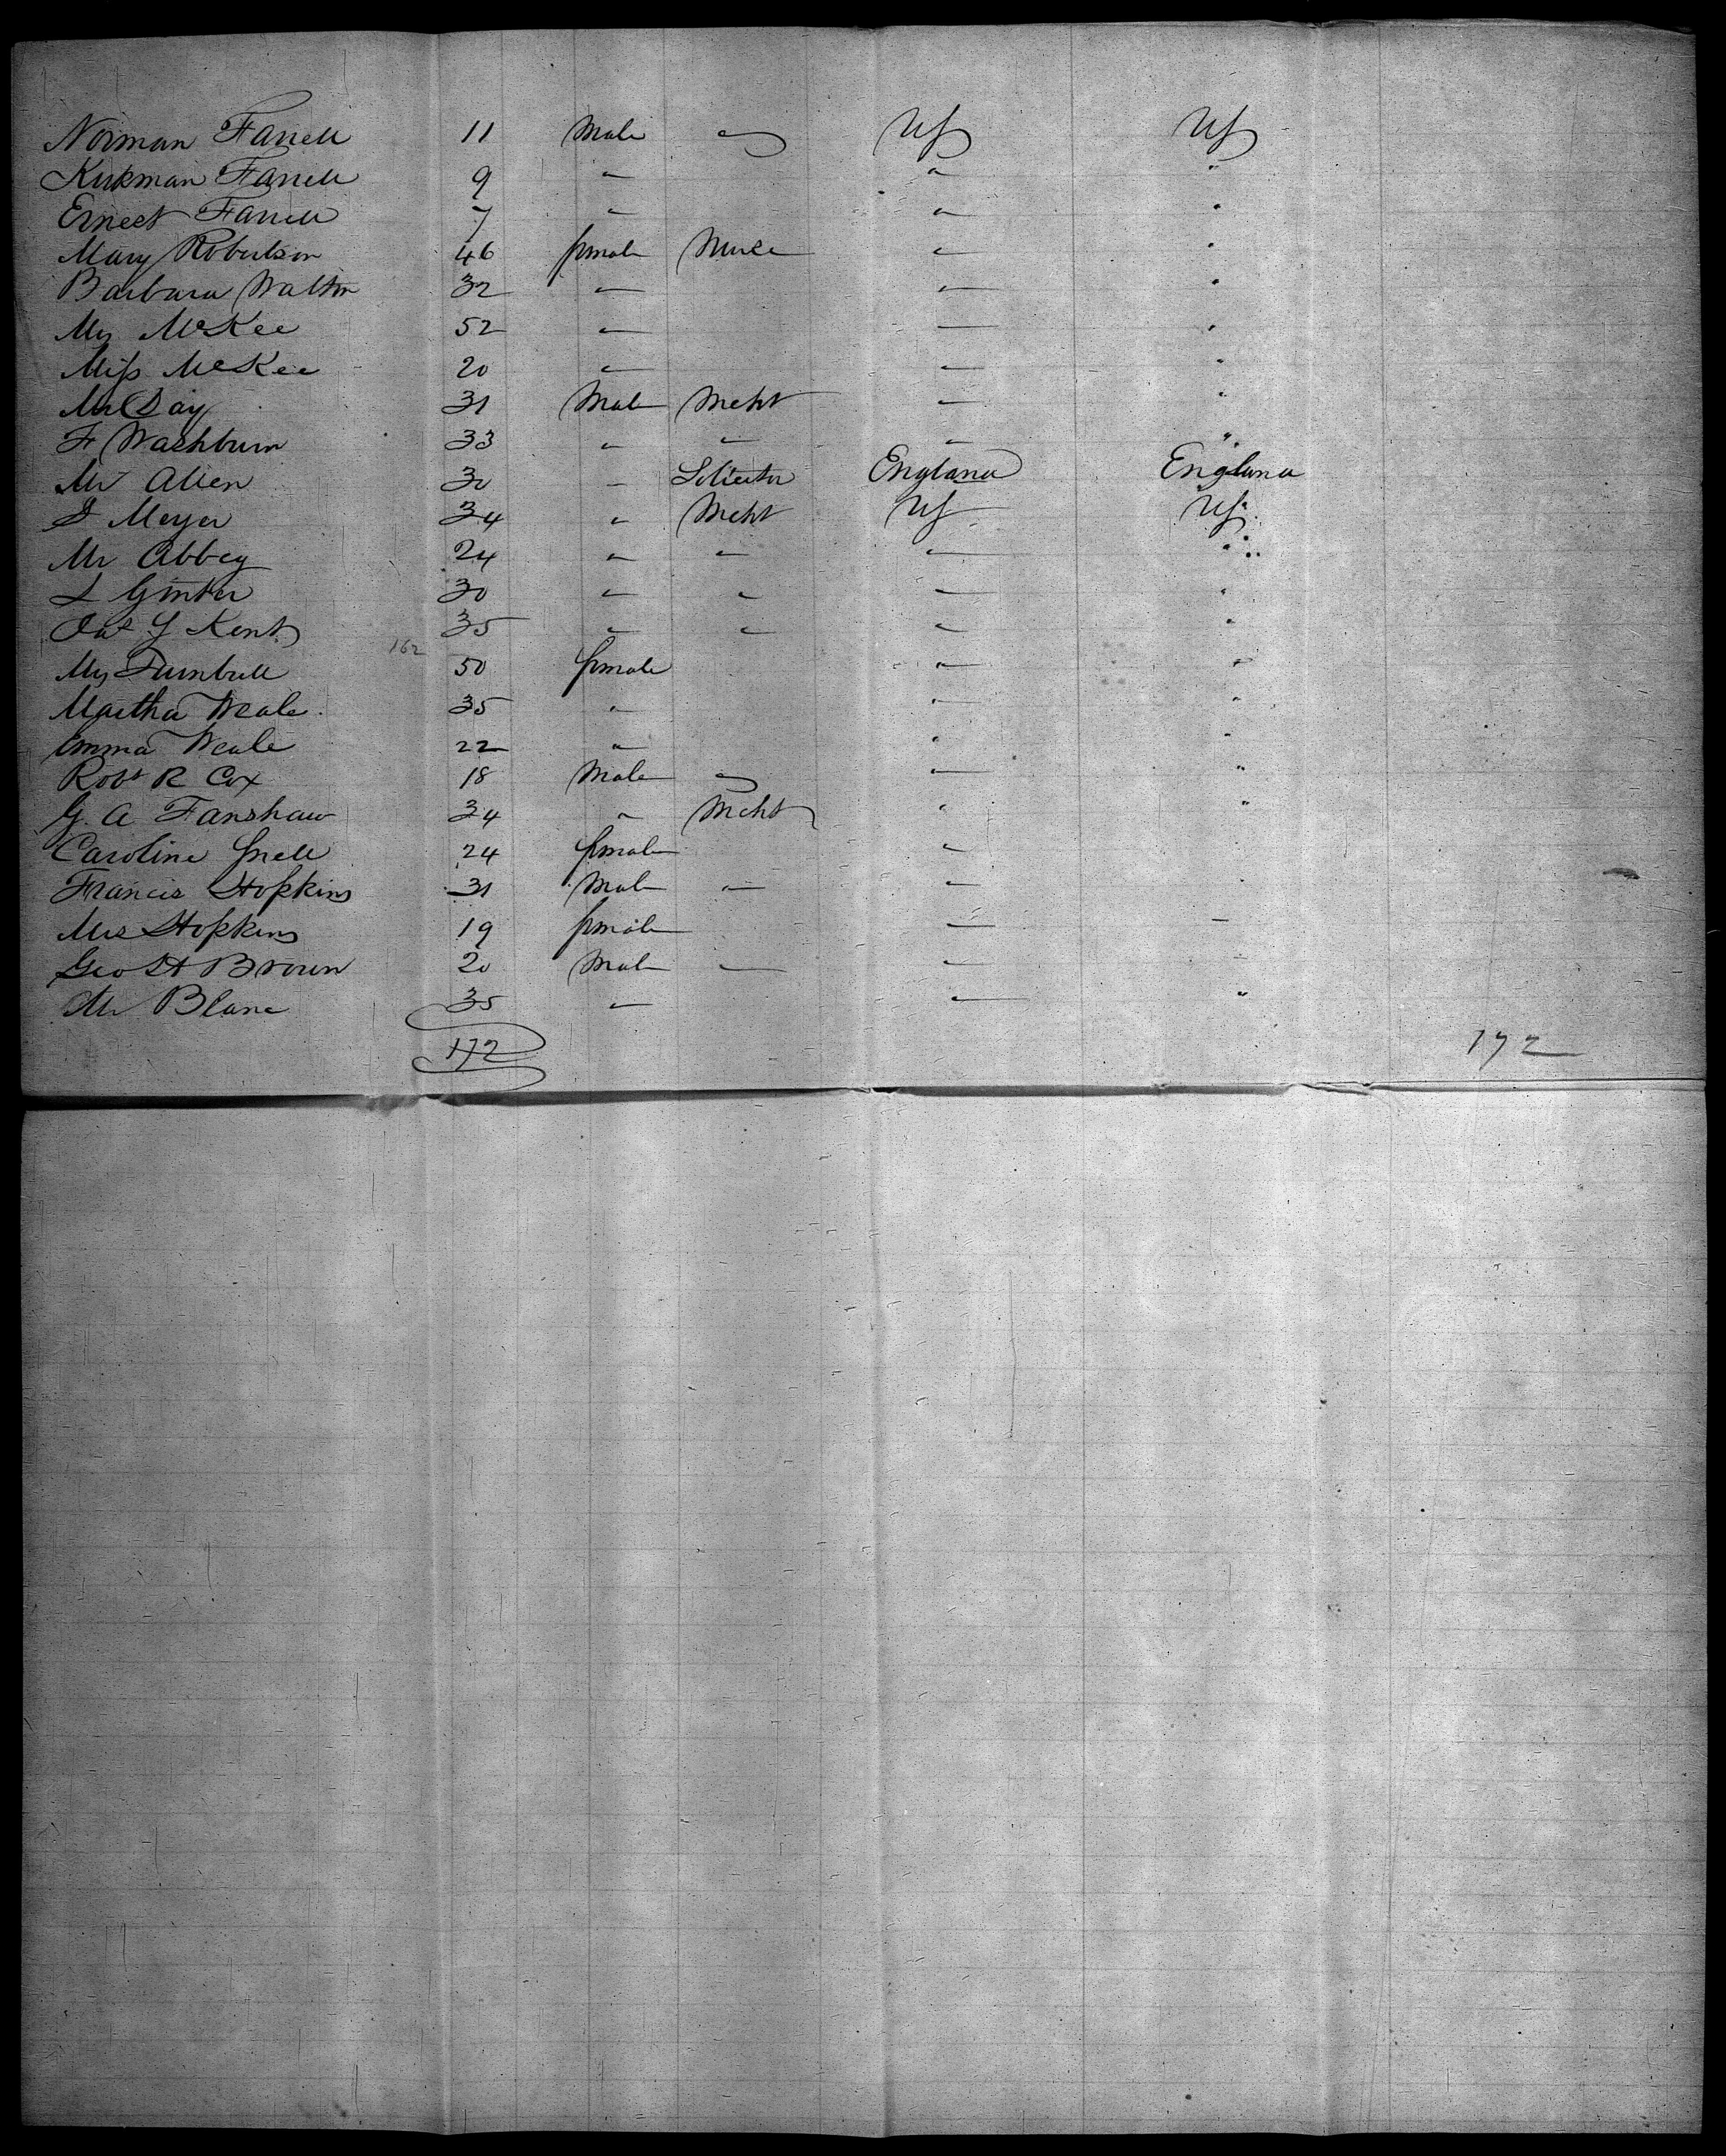 Norman Farrell 11 Male " US US
Kirkman Farrell 9 " " "
Ernest Farrell 7 " " "
Mary Robertson 46 female Nurse " "
Barbara Walton 32 " " "
Mrs McKee 52 " " "
Miss McKee 20 " " "
Mr Day 31 Male Mcht " "
F Washburn 33 " " " "
Mr Allen 30 " Solicitor England England
J Meyer 34 " Mcht US US
Mr Abbey 24 " " " "
L Ginter 30 " " " "
Jas Y Kent 35 " " " "
162
Mrs Turnbull 50 female " "
Martha Weale 35 " " "
Emma Weale 22 " " "
Robt R Cox 18 Male " " "
G. A Fanshaw 34 " Mcht " "
Caroline Snell 24 female "
Francis Hopkins 31 Male " " "
Mrs Hopkins 19 female " "
Geo H Brown 20 Male " " "
Mr Blane 35 " " "
172 172